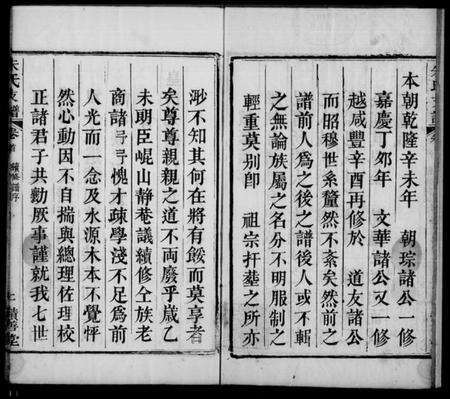 本朝乾隆辛未年　朝琮諸公一修
嘉慶丁夘年　文華諸公又一修
越咸豐辛酉再修於　道友諸公
而昭穆世系釐然不紊矣然前之
譜前人爲之後之譜後人或不輯
之無論族屬之名分不明服制之
輕重莫别卽　祖宗扞塟之所亦
渺不知其何在將有餒而莫享者
矣尊尊親親之道不兩廢乎歲乙
未明臣崐山静菴議續修仝族老
商諸予予愧才疎學淺不足爲前
人光而一念及水源木本不覺怦
然心動因不自揣與總理佐理校
正諸君子共勷厥事謹就我七世
朱氏支譜
卷首
續修譜序
七